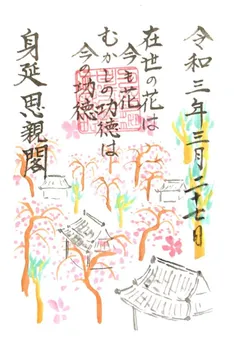 令和三年三月二十七日
在世の花は
今も花
むかしの功徳は
今の功徳
身延思親閣